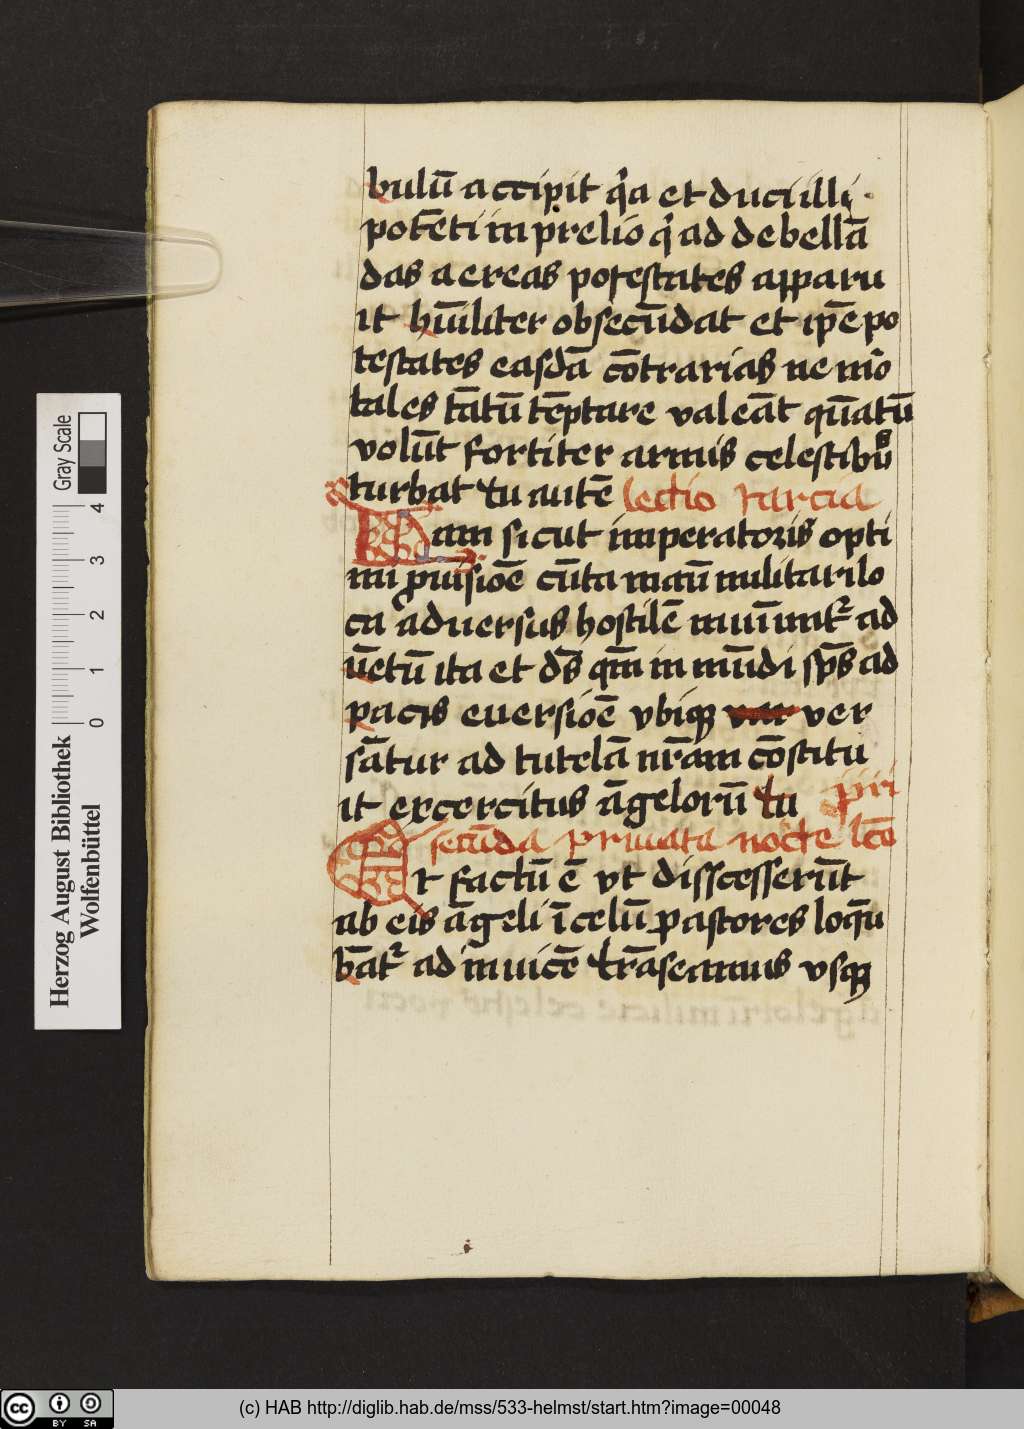 bulū accipit qͥa et duci illi
potēti in prelio qͥ ad debellā
das aereas potestates apparu
it hūiliter obsecūdat et ip̄e po
testates easdā cōtrarias ne mͦr
tales tātū tēptare valeāt quātū
volūt fortiter armis celestibꝰ
turbat tu autē lectio tarcia
Nam sicut imperatoris opti
mi ꝓuisioē cūta manū militari lo
ca adversus hostilē muniunt᷑ ad
uētū ita et ds̄ qm̄ in mūdi sp̄s ad
pacis euersioē vbiqꝫ ver
sātur ad tutelā nr̄am cōstitu
it excercitus āgelorū tu pri
secūda priuata nocte lcō
Et factū ē vt disscesserūt
ab eis āgeli ī celū pastores loqū
bāt᷑ ad īnuicē trāseamus vsqꝫ
Herzog August Bibliothek
Wolfenbüttel
Gray Scale
0 1 2 3 4
(c) HAB http://diglib.hab.de/mss/533-helmst/start.htm?image=00048
cc BY SA